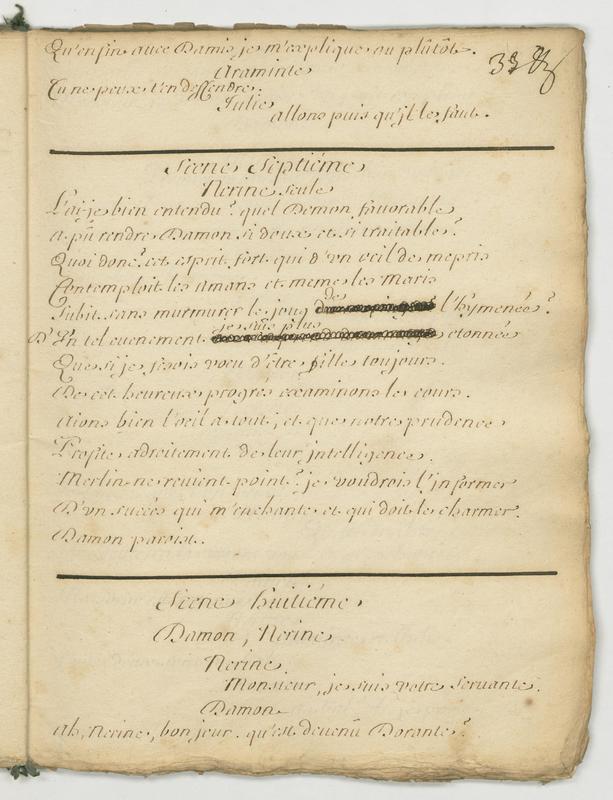 Qu'enfin avec Damis je m'explique au plûtôt.
33
Araminte
Tu ne peux t'en deffendre.
Julie
allons puis qu'il le faut.
Scene Septiéme
Nerine seule
L'ai-je bien entendu? quel Demon favorable
a pû rendre Damon si doux et si traitable?
Quoi donc? cet esprit fort qui d'un oeil de mepris
Contemploit les amans et meme les Maris
Subit sans murmurer le joug de l'hymenée?
D'Un tel evenement je suis plus etonnée
Que si je fesois voeu d'être fille toujours.
De cet heureux progrés examinons le cours.
Aions bien l'oeil a tout, et que notre prudence
Profite adroitement de leur intelligence.
Merlin ne revient point? je voudrois l'informer
D'un succés qui m'enchante et qui doit le charmer.
Damon paroist.
Scene huitiéme
Damon, Nerine
Nerine
Monsieur, je suis votre servante.
Damon
Ah, Nerine, bon jour. qu'est devenû Dorante?